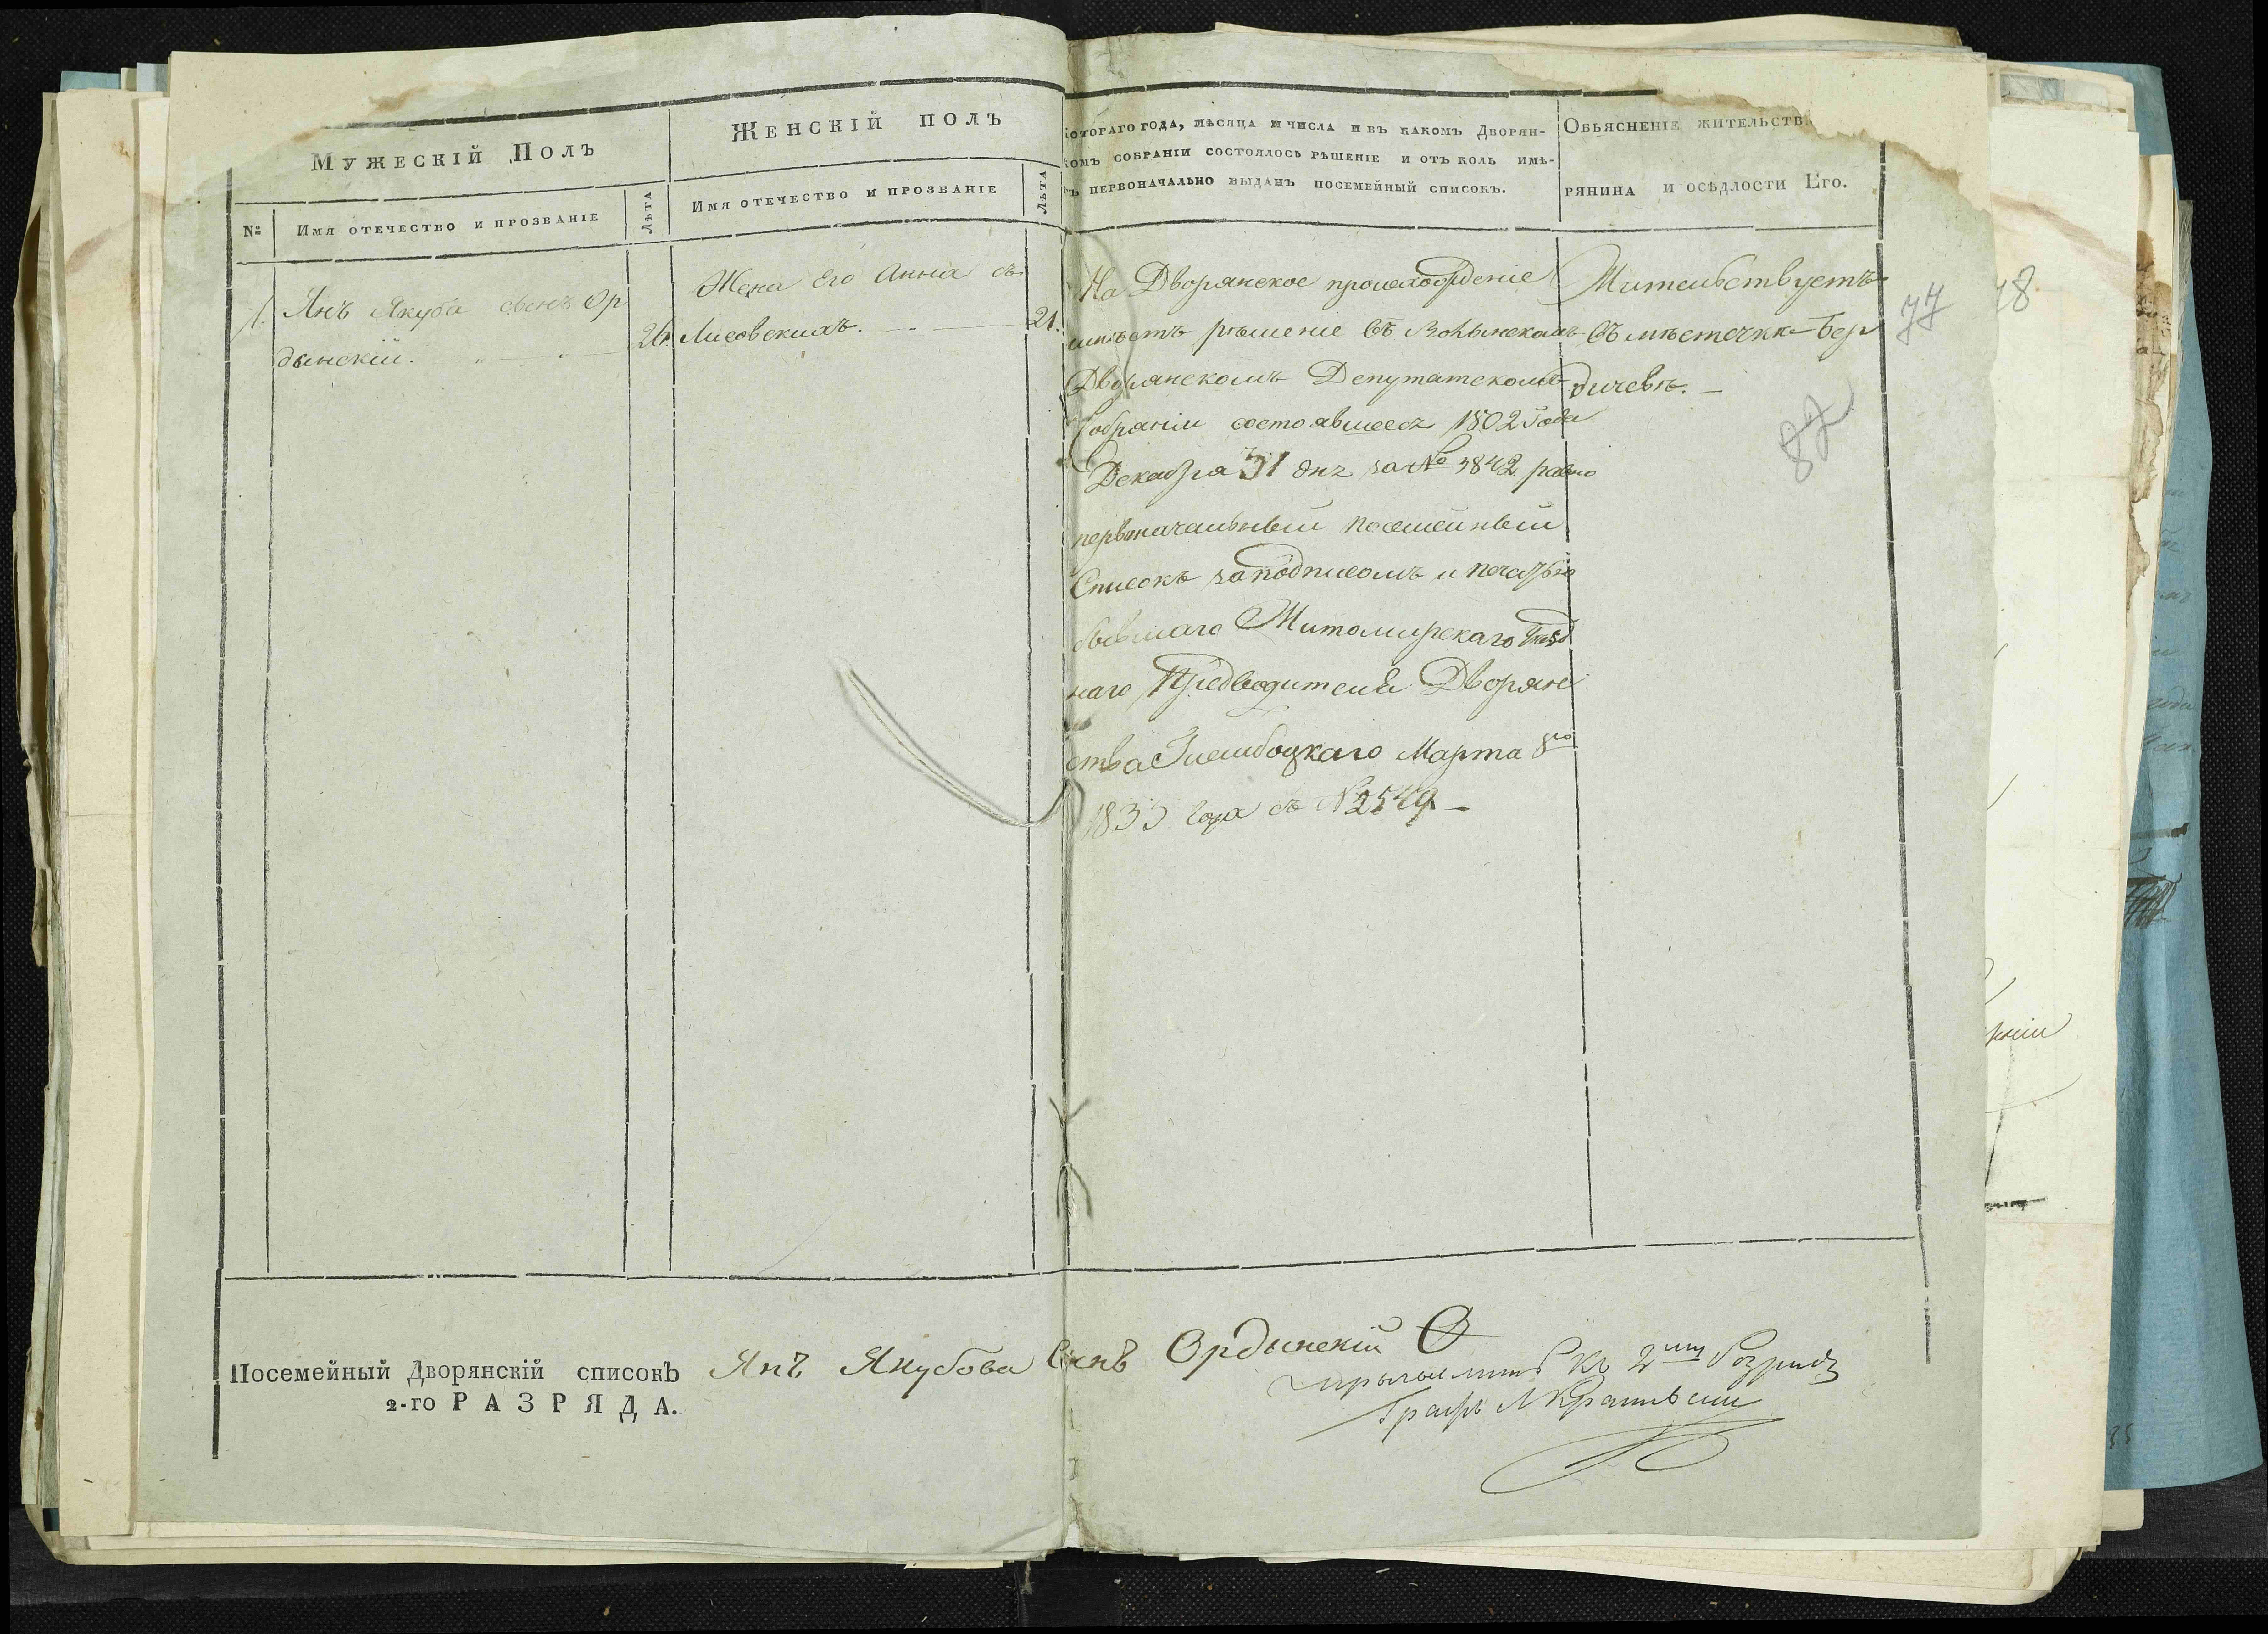 Мужескій Полъ
Женскій полъ
котораго года, мѣсяца и числа и въ какомъ Дворян-
комъ собраніи состоялось рѣшеніе и отъ коль имѣ-
ъ первоначально выданъ посемейный списокъ.
Обьясненіе жительств
рянина и осѣдлости Его.
№
Имя отечество и прозваніе
Лѣта
Имя отечество и прозваніе
Лѣта
1. Янъ Якуба сынъ Ор
дынскій.
26.
Жена Его Анна съ
Лисовскихъ.
21.
На Дворянское происхожденіе
имѣетъ рѣшеніе въ Волынскомъ
Дворянскомъ Депутатскомъ
Собраніи состоявшееся 1802 Года
Декабря 31 дня за № 3842 равно
первоначальный посемейный
Списокъ за подписомъ и печатью
бывшаго Житомирскаго Уѣзд
наго Предводителя Дворянс
тва Глембоцкаго Марта 8го
1833 Года съ № 2549 —
Жительствуетъ
въ мѣстечкѣ Бер
дичевѣ. —
77
78
87
Посемейный Дворянскій списокъ Янъ Якубова Сынъ Ордынскій
2-го РАЗРЯДА.
къ 2му Розряду
Графъ